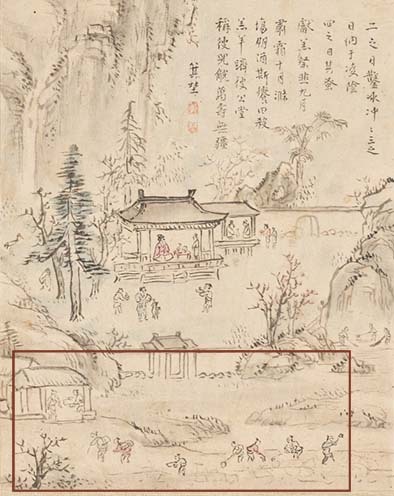 二之日鑿冰冲〻三之
日納于凌陰
四之日其蚤
獻羔祭韭九月
肅霜十月滌
場朋酒斯饗曰殺
羔羊躋彼公堂
稱彼兕觥萬壽無疆
箕埜